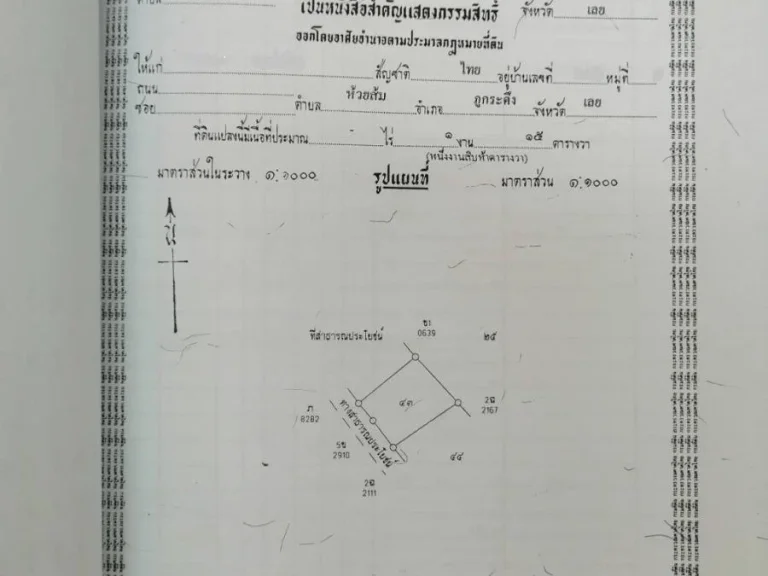 เป็นหนังสือสำคัญแสดงกรรมสิทธิ์ จังหวัด เลย
ออกโดยอาศัยอำนาจตามประมวลกฎหมายที่ดิน
ให้แก่ สัญชาติ ไทย อยู่บ้านเลขที่ หมู่ที่
ถนน
ซอย ตำบล ห้วยส้ม อำเภอ ภูกระดึง จังหวัด เลย
ที่ดินแปลงนี้มีเนื้อที่ประมาณ ไร่ ๑ งาน ๑๕ ตารางวา
(หนึ่งงานสิบห้าตารางวา)
มาตราส่วนในระวาง ๑:๑๐๐๐ รูปแผนที่ มาตราส่วน ๑:๑๐๐๐
ที่สาธารณประโยชน์
0639
๒๕
๔๓
2167
8282
ทางสาธารณประโยชน์
2910
๔๔
2111